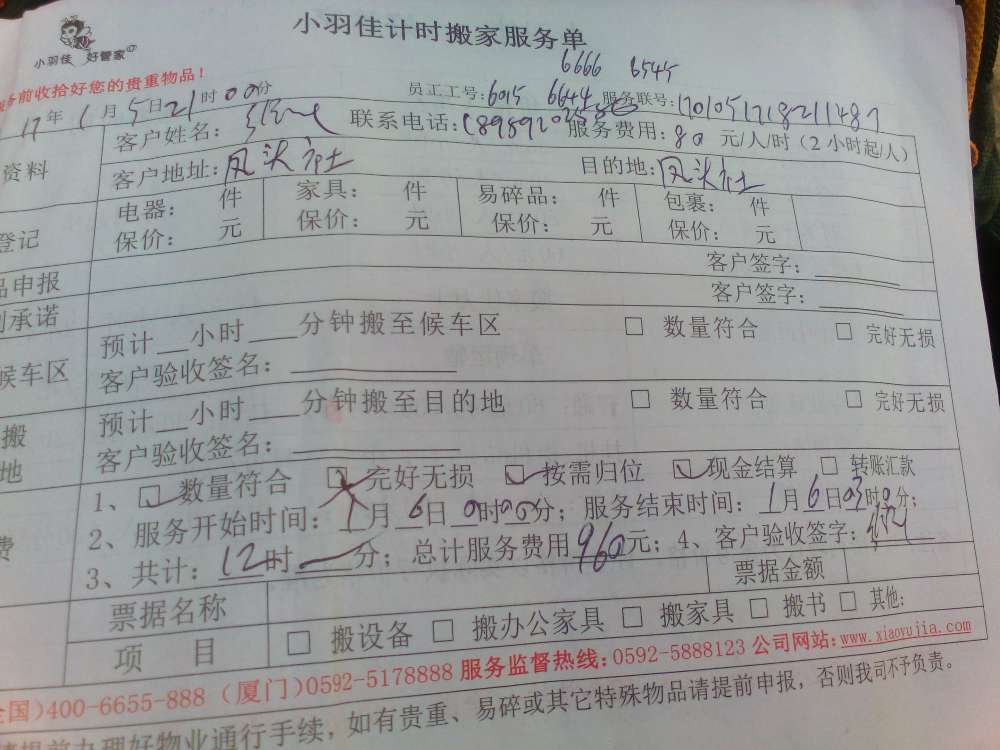 小羽佳计时搬家服务单
小羽佳 好管家
务前收拾好您的贵重物品!
6666 6545
17年1月5日21时00分 员工工号:6015 6644 服务联号:1701051718211487
资料 客户姓名: 联系电话: 服务费用:80 元/人/时(2小时起/人)
客户地址:凤头社 目的地:凤头社
登记 电器: 件 家具: 件 易碎品: 件 包裹: 件
保价: 元 保价: 元 保价: 元 保价: 元
品申报 客户签字:
承诺 客户签字:
候车区 预计__小时___分钟搬至候车区 □ 数量符合 □ 完好无损
客户验收签名:
搬 预计__小时___分钟搬至目的地 □ 数量符合 □ 完好无损
地 客户验收签名:
1、☑ 数量符合 ☒ 完好无损 ☑ 按需归位 ☑ 现金结算 □ 转账汇款
费 2、服务开始时间:1月6日0时00分;服务结束时间:1月6日03时0分;
3、共计:12时—分;总计服务费用960元;4、客户验收签字:
票据名称 票据金额
项 目 □ 搬设备 □ 搬办公家具 □ 搬家具 □ 搬书 □ 其他:
全国)400-6655-888 (厦门)0592-5178888 服务监督热线:0592-5888123 公司网站:www.xiaoyujia.com
提前办理好物业通行手续,如有贵重、易碎或其它特殊物品请提前申报,否则我司不予负责。